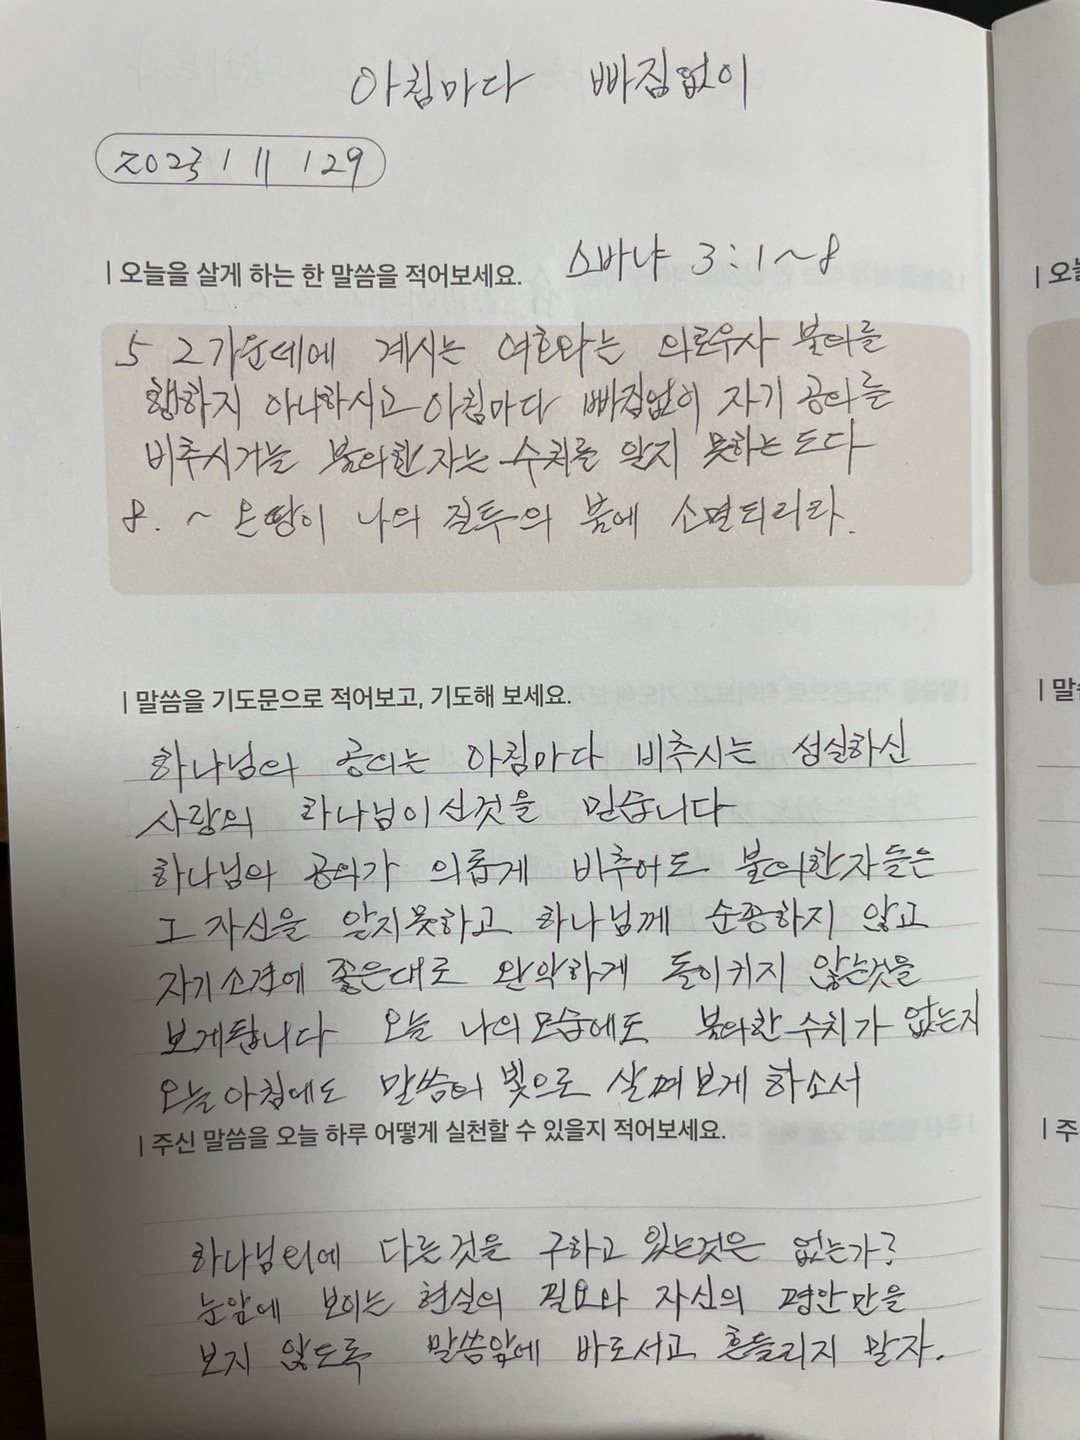 아침마다 빠짐없이
2023 / 11 / 29
| 오늘을 살게 하는 한 말씀을 적어보세요. 스바냐 3:1~8
5 그가운데에 계시는 여호와는 의로우사 불의를
행하지 아니하시고 아침마다 빠짐없이 자기 공의를
비추시거늘 불의한 자는 수치를 알지 못하는도다
8. ~ 온땅이 나의 질투의 불에 소멸되리라.
| 말씀을 기도문으로 적어보고, 기도해 보세요.
하나님의 공의는 아침마다 비추시는 성실하신
사랑의 하나님이신것을 믿습니다
하나님의 공의가 의롭게 비추어도 불의한자들은
그 자신을 알지못하고 하나님께 순종하지 않고
자기소견에 좋은대로 완악하게 돌이키지 않는것을
보게됩니다 오늘 나의모습에도 불의한 수치가 없는지
오늘아침에도 말씀의 빛으로 살펴보게 하소서
| 주신 말씀을 오늘 하루 어떻게 실천할 수 있을지 적어보세요.
하나님외에 다른것을 구하고 있는것은 없는가?
눈앞에 보이는 현실의 필요와 자신의 평안만을
보지 않도록 말씀앞에 바로서고 흔들리지 말자.
| 오늘
| 말씀
| 주